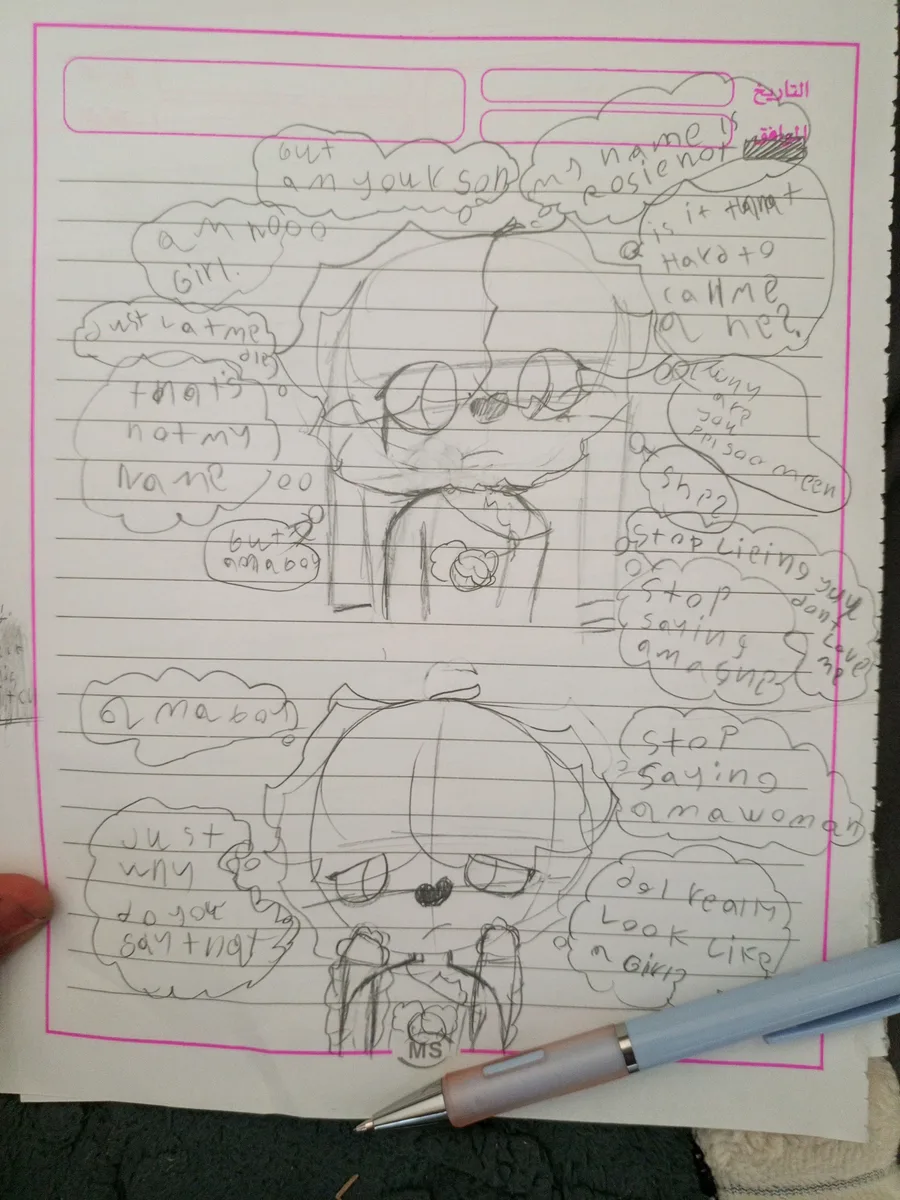 التاريخ
but
am youk son
my name is
rosie not
am nooo
Girl.
is it that
Hard to
call me
a he?
Just Latme
die
that's
not my
Name
Why
are
you
ppl soo meen
She?
but
am a boy
Stop Lieing you
dont
Love
me
Stop
saying
amasing
a m a boy
Stop
saying
a m a woman
Just
why
do you
say that
do I really
Look Like
a Girl?
MS